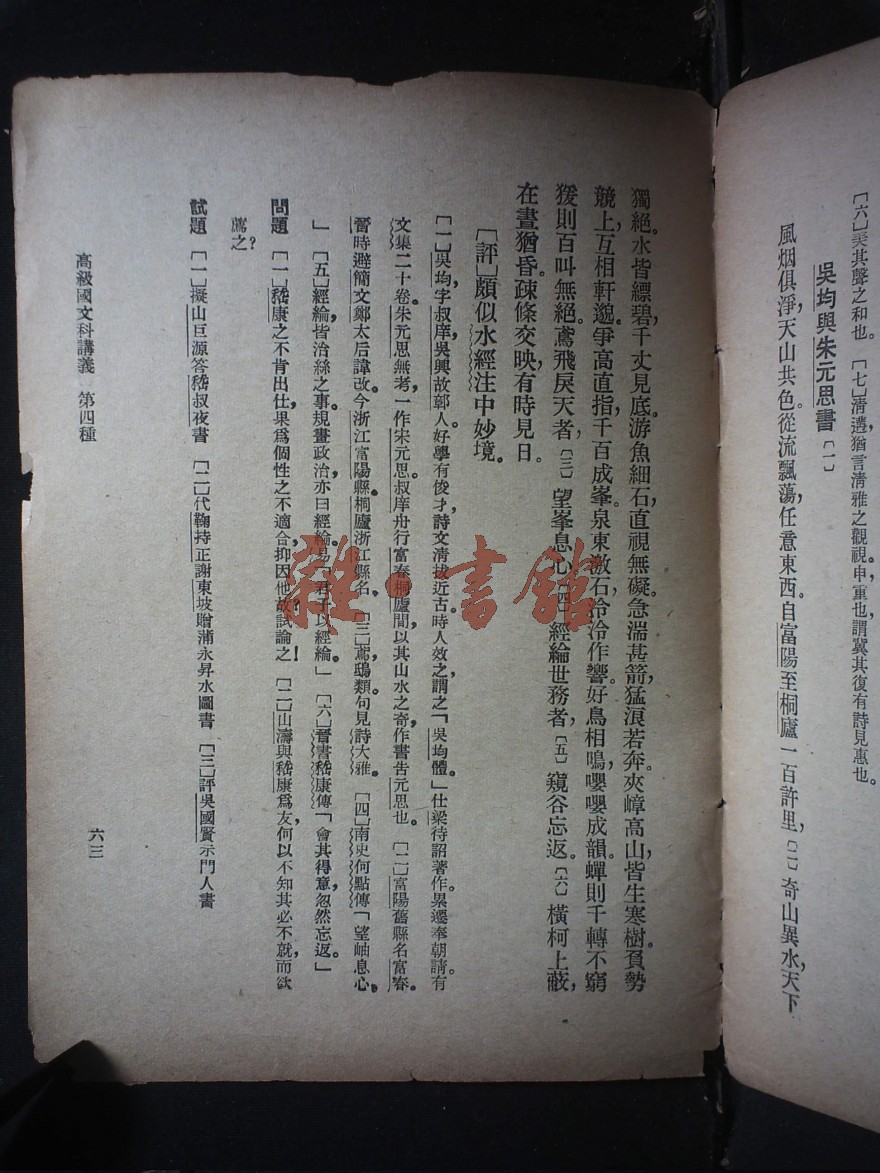 〔六〕美其聲之和也。〔七〕清遴猶言清雅之觀視。申,重也,謂冀其復有詩見惠也。
吳均與朱元思書〔一〕
風烟俱淨,天山共色。從流飄蕩,任意東西。自富陽至桐廬一百許里,〔二〕奇山異水,天下
獨絕。水皆縹碧,千丈見底。游魚細石,直視無礙。急湍甚箭,猛浪若奔。夾嶂高山,皆生寒樹。負勢
競上,互相軒邈。爭高直指,千百成峯。泉東激石,泠泠作響。好鳥相鳴,嚶嚶成韻。蟬則千轉不窮,
猨則百叫無絕。鳶飛戾天者,〔三〕望峯息心。〔四〕經綸世務者,〔五〕窺谷忘返。〔六〕橫柯上蔽,
在晝猶昏。疎條交映,有時見日。
〔評〕頗似水經注中妙境。
〔一〕吳均,字叔庠,吳興故鄣人。好學有俊才,詩文清拔近古,時人效之,謂之「吳均體。」仕梁,待詔著作。累遷奉朝請。有
文集二十卷。朱元思無考,一作宋元思。叔庠舟行富春桐廬間,以其山水之奇,作書告元思也。〔二〕富陽舊縣名富春。
晉時避簡文鄭太后諱改。今浙江富陽縣。桐廬,浙江縣名。〔三〕鳶,鴟類。句見詩大雅。〔四〕南史何點傳「望岫息心。
」〔五〕經綸皆治絲之事,規畫政治亦曰經綸。易「君子以經綸。」〔六〕晉書嵇康傳「會其得意,忽然忘返。」
問題 〔一〕嵇康之不肯出仕,果爲個性之不適合,抑因他故?試論之!〔二〕山濤與嵇康爲友,何以不知其必不就,而欲
薦之?
試題 〔一〕擬山巨源答嵇叔夜書 〔二〕代鞠持正謝東坡贈蒲永昇水圖書 〔三〕評吳國賢示門人書
高級國文科講義 第四種
六三
雜·書館